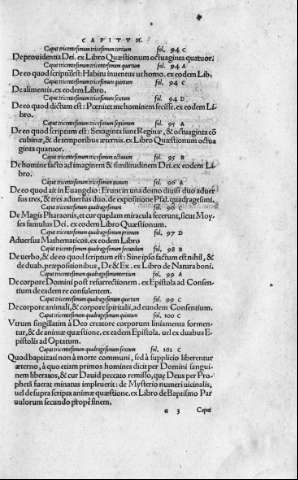 CAPITVM.
Caput tricentesimum tricesimum tertium fol. 94 C
De prouidentia Dei. ex Libro Quæstionum octuaginta quatuor.
Caput tricentesimum tricesimum quartum fol. 94 A
De eo quod scriptū est: Habitu inuentus ut homo. ex eodem Lib.
Caput tricentesimum tricesimum quintum fol. 94 C
De alimentis. ex eodem Libro.
Caput tricentesimum tricesimum sextum fol. 94 D
De eo quod dictum est: Pœnitet me hominem fecisse. ex eodem Li-
bro.
Caput tricentesimum tricesimum septimum fol. 95 A
De eo quod scriptum est: Sexaginta sunt Reginæ, & octuaginta cō
cubinæ, & de temporibus æternis. ex Libro Quæstionum octua
ginta quatuor.
Caput tricentesimum tricesimum octauum fol. 95 B
De homine facto ad imaginem & similitudinem Dei. ex eodem Li-
bro.
Caput tricentesimum tricesimum nonum fol. 96 A
De eo quod ait in Euangelio: Erunt in una domo diuisi duo aduer
sus tres, & tres aduersus duo. de expositione Psal. quadragesimi.
Caput tricentesimum quadragesimum fol. 96 C
De Magis Pharaonis, et cur quædam miracula fecerunt, sicut Moy-
ses famulus Dei. ex eodem Libro Quæstionum.
Caput tricentesimum quadragesimum primum fol. 97 D
Aduersus Mathematicos. ex eodem Libro
Caput tricentesimum quadragesimum secundum fol. 98 B
De uerbo, & de eo quod scriptum est: Sine ipso factum est nihil, &
de duab. præpositionibus, De & Ex. ex Libro de Natura boni.
Caput tricentesimum quadragesimum tertium fol. 99 A
De corpore Domini post resurrectionem. ex Epistola ad Consen-
tium de eadem re consulentem.
Caput tricentesimum quadragesimum quartum fol. 99 C
De corpore animali, & corpore spiritali, ad eundem Consentium.
Caput tricentesimum quadragesimum quintum fol. 100 C
Vtrum singillatim à Deo creatore corporum liniamenta formen-
tur, & de animæ quæstione. ex eadem Epistola. uel ex duabus E-
pistolis ad Optatum.
Caput tricentesimum quadragesimum sextum fol. 101 C
Quod baptizati non à morte communi, sed à supplicio liberentur
æterno, à quo etiam primos homines dicit per Domini sangui-
nem liberatos, & cur Dauid peccato remisso, quæ Deus per Pro-
phetā fuerat minatus impleuerit: de Mysterio numeri uicinalis,
uel de supra scripta animæ quæstione. ex Libro de Baptismo Par
uulorum secundo prope finem.
G 3 Caput